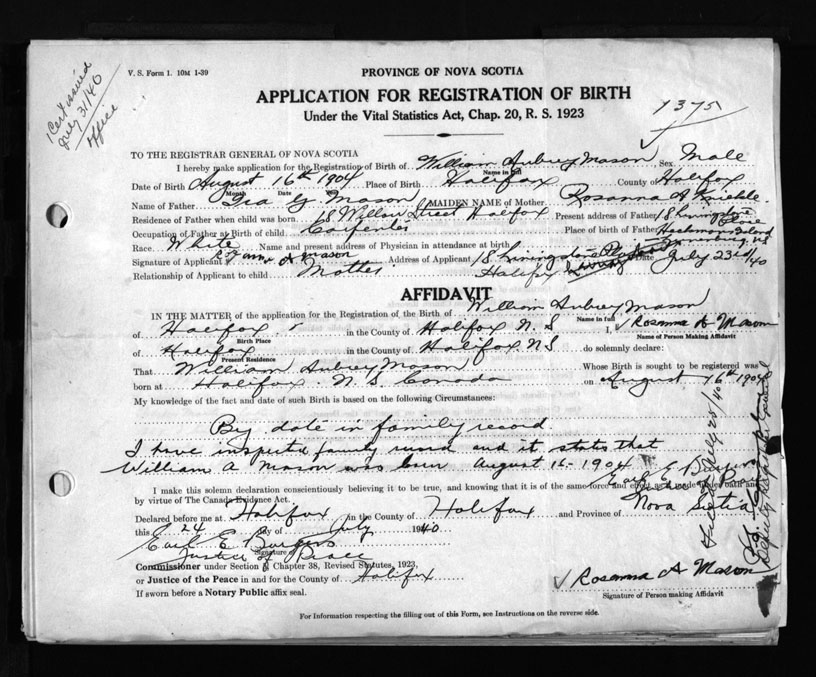 V. S. Form 1. 10M 1-39
1 Cert issued
July 31/40
office
PROVINCE OF NOVA SCOTIA
APPLICATION FOR REGISTRATION OF BIRTH
Under the Vital Statistics Act, Chap. 20, R. S. 1923
1375
TO THE REGISTRAR GENERAL OF NOVA SCOTIA
I hereby make application for the Registration of Birth of William Aubrey Mason, Sex Male
Name in full
Date of Birth August 16th 1904 Place of Birth Halifax County of Halifax
Month Day
Name of Father Ira G Mason MAIDEN NAME of Mother Rosanna A
Residence of Father when child was born. 18 Willow Street Halifax Present address of Father 18 Livingstone
Occupation of Father at Birth of child. Carpenter Place of Birth of Father Heckmans Island
Race. White Name and present address of Physician in attendance at birth Lunenburg NS
Signature of Applicant Rosanna A Mason Address of Applicant 18 Livingstone Place Date July 23rd/40
Relationship of Applicant to child. Mother Halifax
AFFIDAVIT
IN THE MATTER of the application for the Registration of the Birth of William Aubrey Mason
Name in full
of Halifax in the County of Halifax N. S I, Rosanna A Mason
Birth Place Name of Person Making Affidavit
of Halifax in the County of Halifax NS do solemnly declare:
Present Residence
That William Aubrey Mason Whose Birth is sought to be registered was
born at Halifax. N. S. Canada on August 16th 1904
My knowledge of the fact and date of such Birth is based on the following Circumstances:
By date in family record.
I have inspected family record and it states that
William A Mason was born August 16 - 1904
Earl E Burgess
I make this solemn declaration conscientiously believing it to be true, and knowing that it is of the same force and effect as if made under oath and
by virtue of The Canada Evidence Act.
Declared before me at Halifax in the County of Halifax and Province of Nova Scotia
this 24 day of July 1940
Earl E Burgess
Signature of
Justice of Peace
Commissioner under Section 8 Chapter 38, Revised Statutes, 1923,
or Justice of the Peace in and for the County of Halifax
If sworn before a Notary Public affix seal.
Rosanna A Mason
Signature of Person making Affidavit
For Information respecting the filling out of this Form, see Instructions on the reverse side.
Filed July 25/40
Deputy Registrar General